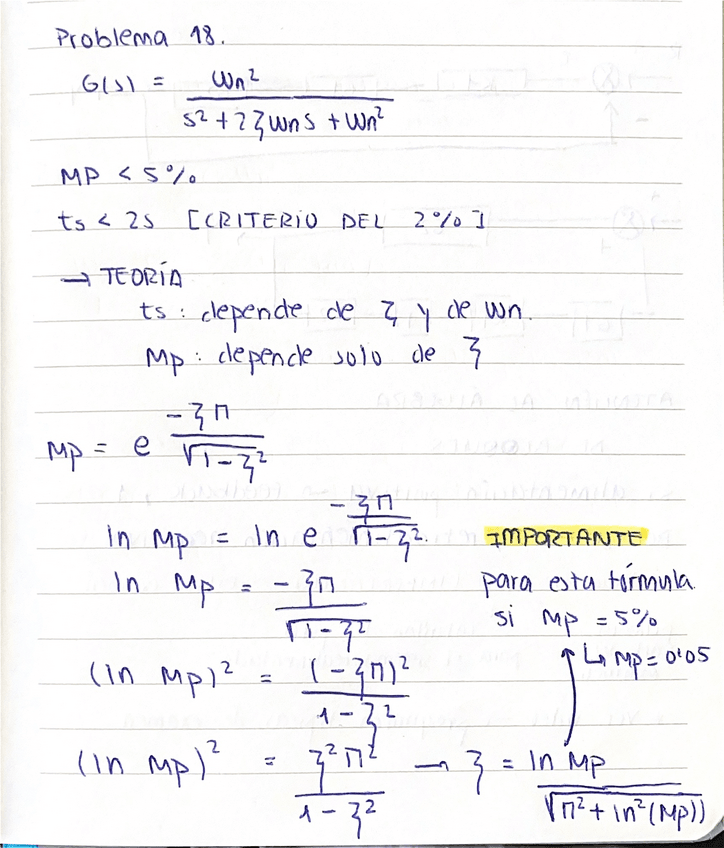 Problema 18.
G(s) = ωn² / (s² + 2ζωns + ωn²)
MP < 5%
ts < 2s [CRITERIO DEL 2%]
→ TEORÍA
ts : depende de ζ y de ωn.
Mp : depende solo de ζ
Mp = e^(-ζπ / √(1-ζ²))
ln Mp = ln e^(-ζπ / √(1-ζ²))
IMPORTANTE
ln Mp = -ζπ / √(1-ζ²)
para esta fórmula
si Mp = 5%
↳ Mp = 0'05
(ln Mp)² = (-ζπ)² / (1-ζ²)
(ln Mp)² = ζ²π² / (1-ζ²) → ζ = ln Mp / √(π² + ln²(Mp))